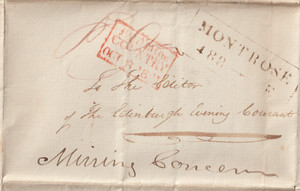 MONTROSE
COUNTRY
To The Editor
of The Edinburgh Evening Courant
Mining Concern